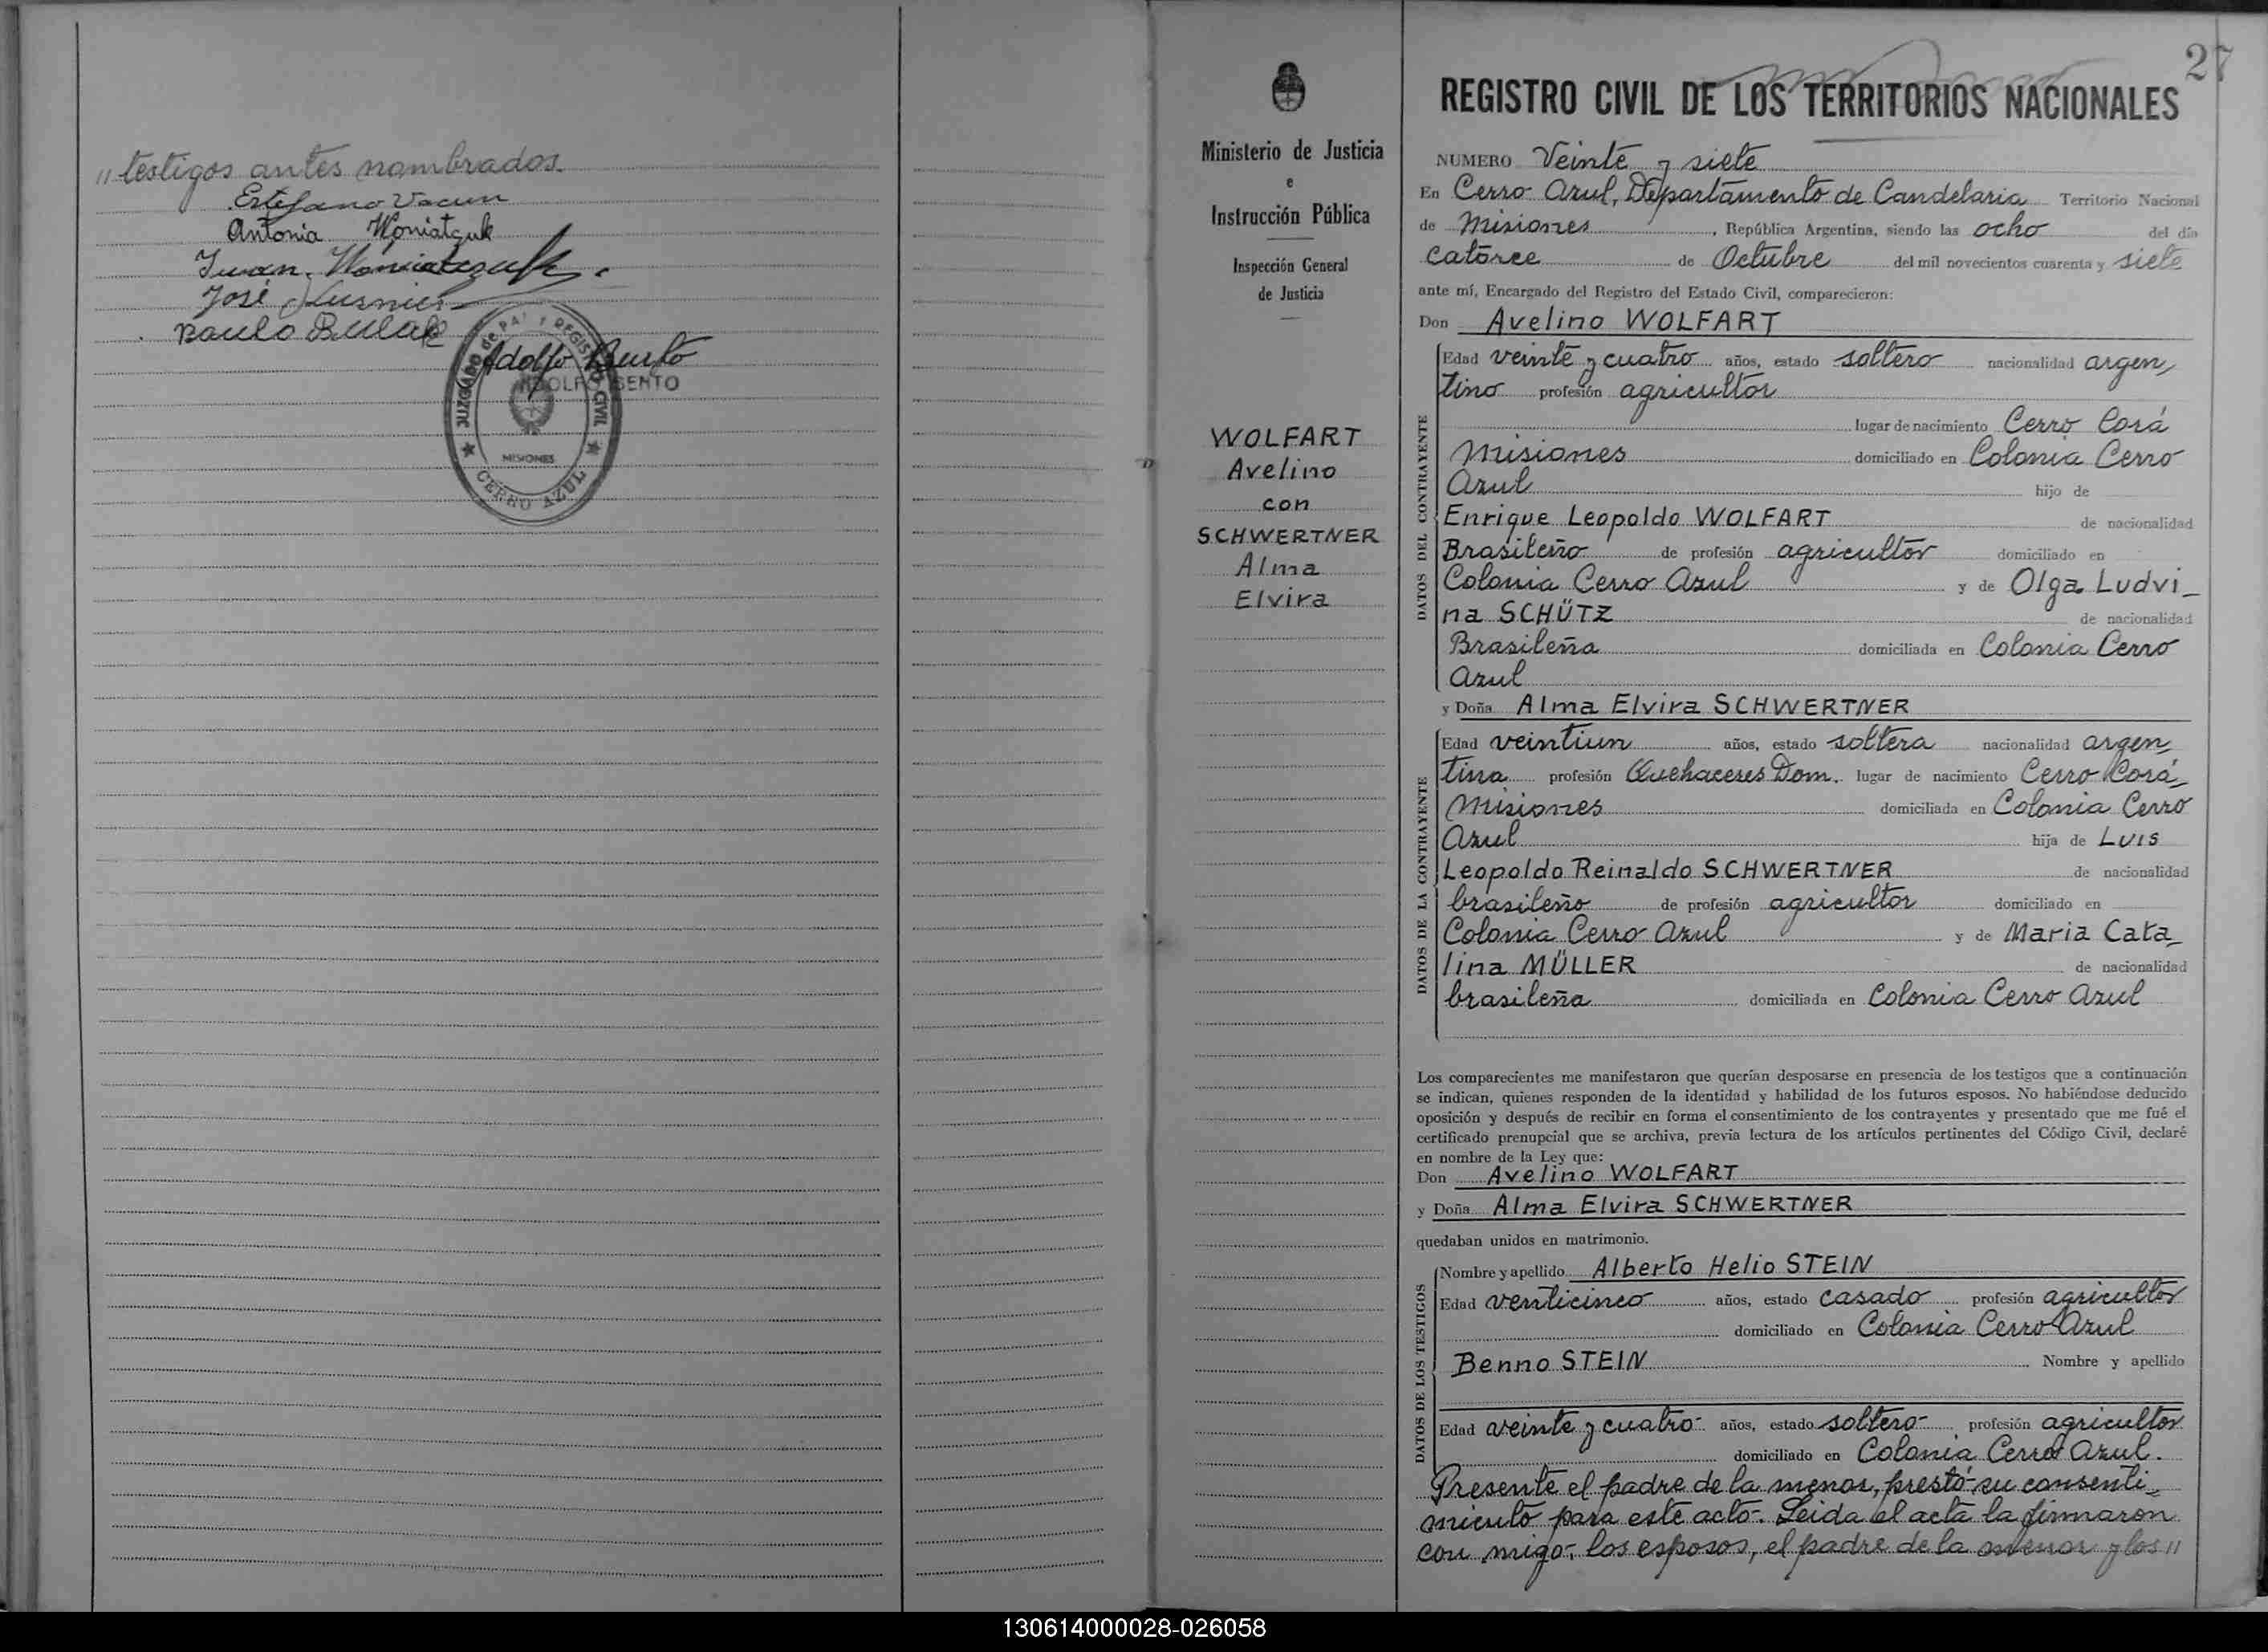 „ testigos antes nombrados.
Estefano Vacun
Antonia Woniatzuk
Iwan
José Kusnier
Paulo Bulak
Adolfo Bento
ADOLFO BENTO
JUZGADO de PAZ Y REGISTRO CIVIL
MISIONES
CERRO AZUL
Ministerio de Justicia
e
Instrucción Pública
Inspección General
de Justicia
WOLFART
Avelino
con
SCHWERTNER
Alma
Elvira
27
REGISTRO CIVIL DE LOS TERRITORIOS NACIONALES
NUMERO Veinte y siete
En Cerro Azul, Departamento de Candelaria Territorio Nacional
de Misiones, República Argentina, siendo las ocho del día
catorce de Octubre del mil novecientos cuarenta y siete
ante mí, Encargado del Registro del Estado Civil, comparecieron:
Don Avelino WOLFART
DATOS DEL CONTRAYENTE
Edad veinte y cuatro años, estado soltero nacionalidad argen,
tino profesión agricultor
lugar de nacimiento Cerro Corá
Misiones domiciliado en Colonia Cerro
Azul hijo de
Enrique Leopoldo WOLFART de nacionalidad
Brasileño de profesión agricultor domiciliado en
Colonia Cerro Azul y de Olga Ludvi_
na SCHÜTZ de nacionalidad
Brasileña domiciliada en Colonia Cerro
Azul
y Doña Alma Elvira SCHWERTNER
DATOS DE LA CONTRAYENTE
Edad veintiun años, estado soltera nacionalidad argen,
tina profesión Quehaceres Dom. lugar de nacimiento Cerro Corá_
Misiones domiciliada en Colonia Cerro
Azul hija de LUIS
Leopoldo Reinaldo SCHWERTNER de nacionalidad
brasileño de profesión agricultor domiciliado en
Colonia Cerro Azul y de Maria Cata_
lina MÜLLER de nacionalidad
brasileña domiciliada en Colonia Cerro Azul
Los comparecientes me manifestaron que querían desposarse en presencia de los testigos que a continuación
se indican, quienes responden de la identidad y habilidad de los futuros esposos. No habiéndose deducido
oposición y después de recibir en forma el consentimiento de los contrayentes y presentado que me fué el
certificado prenupcial que se archiva, previa lectura de los artículos pertinentes del Código Civil, declaré
en nombre de la Ley que:
Don Avelino WOLFART
y Doña Alma Elvira SCHWERTNER
quedaban unidos en matrimonio.
DATOS DE LOS TESTIGOS
Nombre y apellido Alberto Helio STEIN
Edad venticinco años, estado casado profesión agricultor
domiciliado en Colonia Cerro Azul
Benno STEIN Nombre y apellido
Edad veinte y cuatro- años, estado soltero- profesión agricultor
domiciliado en Colonia Cerro Azul.
Presente el padre de la menor, prestó su consenti_
miento para este acto-. Leida el acta la firmaron
con migo-, los esposos, el padre de la menor y los "
130614000028-026058